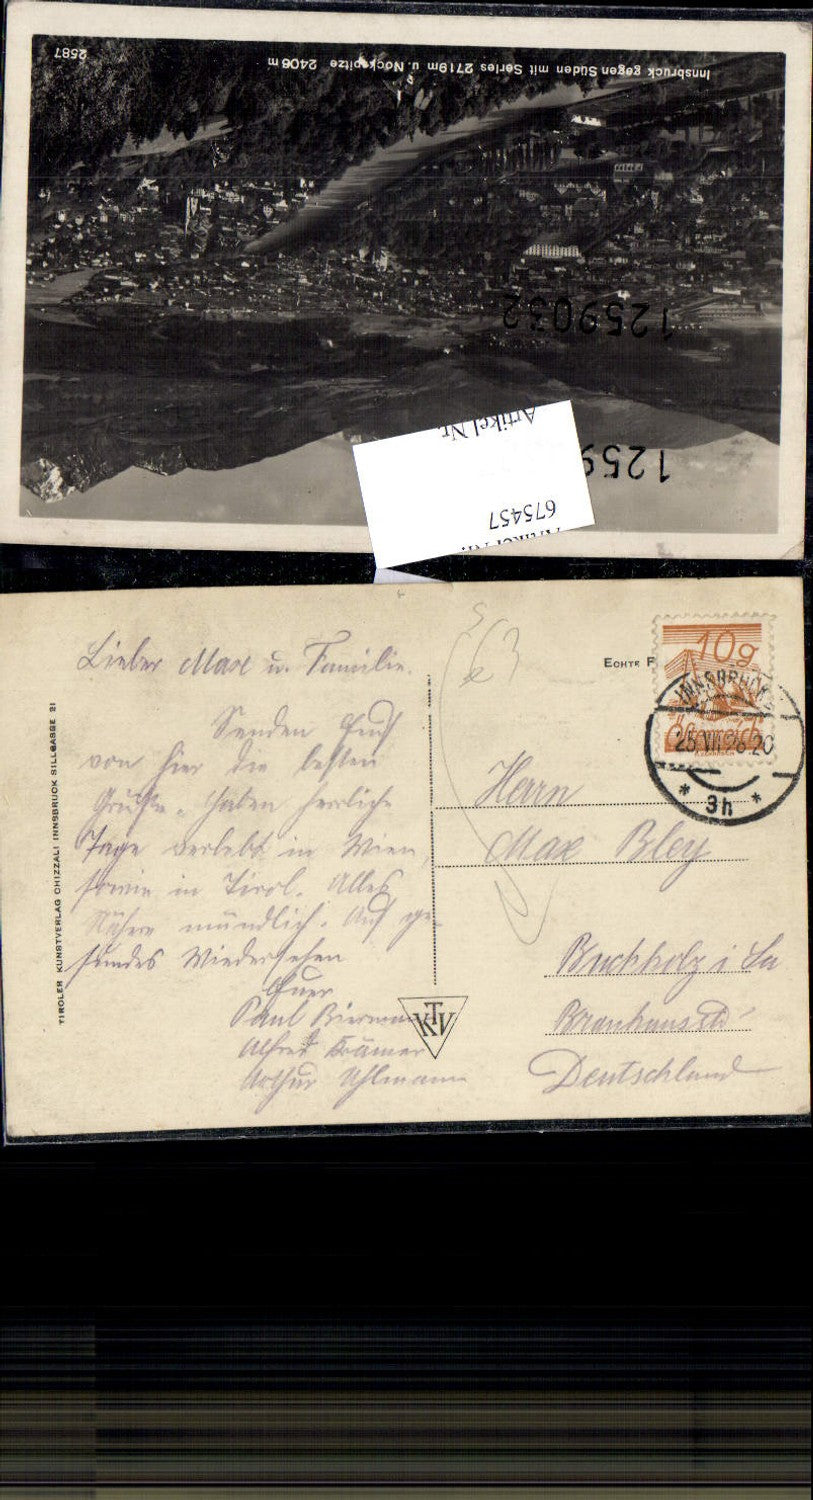 2587
Innsbruck gegen Süden mit Serles 2719m u. Nockspitze 2406m
1259032
1259
Artikel Nr.
675457
Artikel Nr.
Lieber Max u. Familie.
Senden Euch
von hier die besten
Grüße. Haben herrliche
Tage verlebt in Wien,
sowie in Tirol. Alles
Nähere mündlich. Auf ge-
sundes Wiedersehen
Euer
Paul Biermann
Alfred Krämer
Arthur Uhlmann
TIROLER KUNSTVERLAG CHIZZALI INNSBRUCK SILLGASSE 21
TKV
ECHTE F
10g
Österreich
INNSBRUCK
25.VII.28.20
* 3h *
Herrn
Max Bley
Buchholz i. Sa
Brauhausstr.
Deutschland